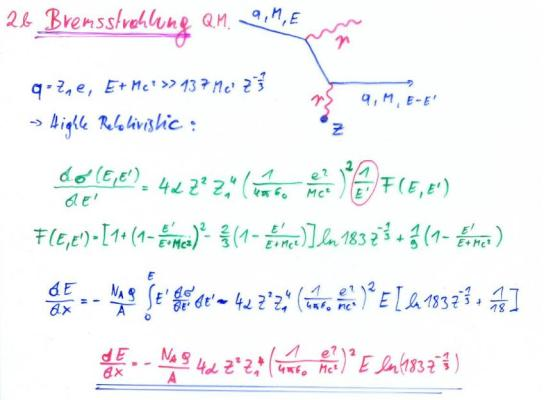 2.b Bremsstrahlung Q.M.
q, M, E
γ
q = Z₁e, E + Mc² >> 137 Mc² Z^-1/3
γ
q, M, E-E'
→ Highly Relativistic:
Z
dσ(E,E')/dE' = 4α Z² Z₁⁴ (1/4πε₀ e²/Mc²)² 1/E' F(E,E')
F(E,E') = [1+(1-E'/E+Mc²)² - 2/3(1-E'/E+Mc²)] ln 183 Z^-1/3 + 1/9(1-E'/E+Mc²)
dE/dx = - N_A ρ/A ∫₀^E E' dσ/dE' dE' ~ 4α Z² Z₁⁴ (1/4πε₀ e²/Mc²)² E [ln 183 Z^-1/3 + 1/18]
dE/dx = - N_A ρ/A 4α Z² Z₁⁴ (1/4πε₀ e²/Mc²)² E ln(183 Z^-1/3)